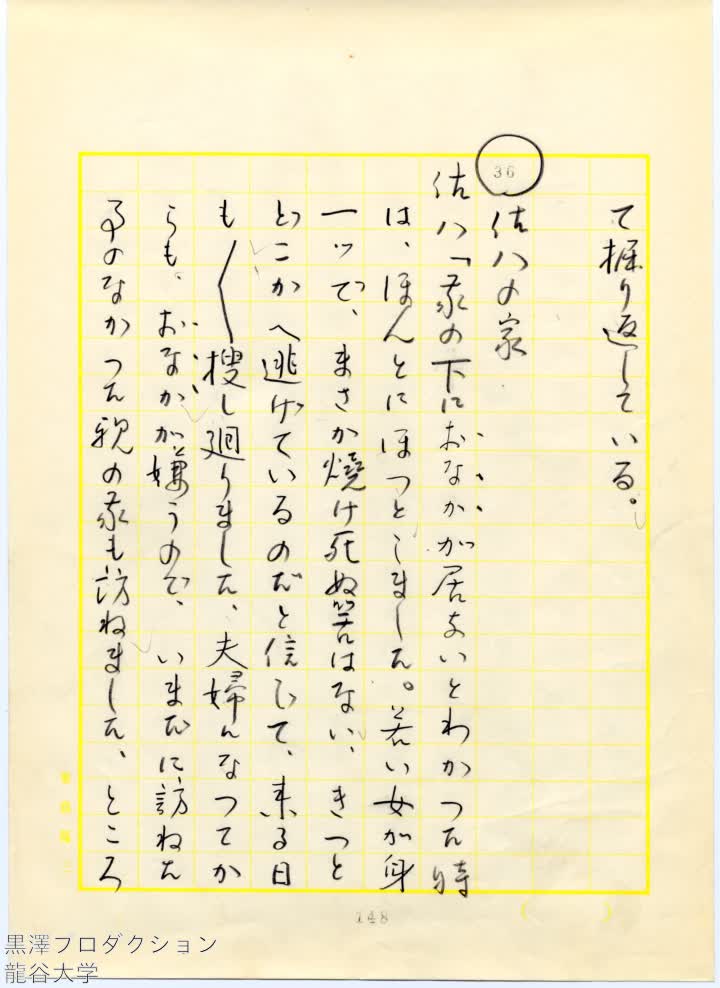 て掘り返している。
36
佐八の家
佐八「家の下におなかが居ないとわかつた時
は、ほんとにほつとしました。若い女が身
一ッで、まさか焼け死ぬ筈はない、きつと
どこかへ逃げているのだと信じて、来る日
も〱捜し廻りました、夫婦んなつてか
らも、おなかが嫌うので、いまだに訪ねた
事のなかつた親の家も訪ねました、ところ
148
黒澤プロダクション
龍谷大学